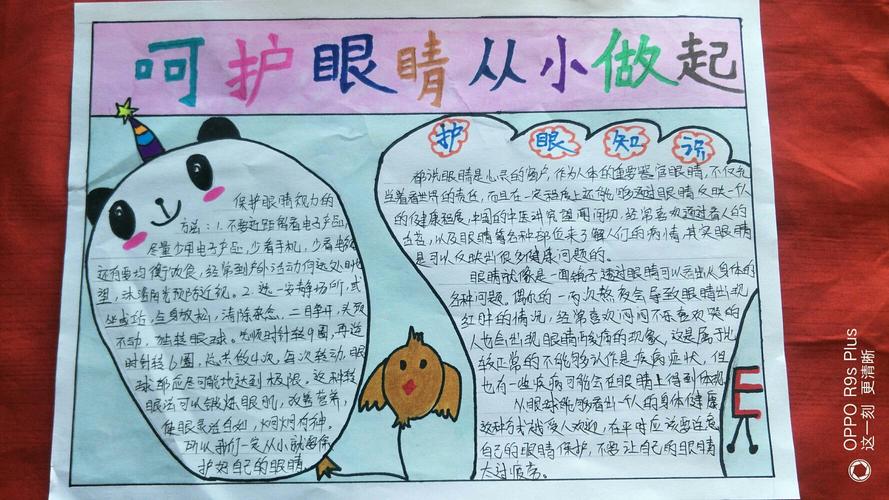 呵护眼睛从小做起
保护眼睛视力的
方法：1.不要近距离看电子产品,
尽量少用电子产品,少看手机,少看电视
还有要均衡饮食,经常到户外活动向远处眺
望,沐浴阳光预防近视。2.选一安静场所,或
坐或站,全身放松,清除杂念,二目睁开,头颈
不动,独转眼球。先顺时针转9圈,再逆
时针转6圈,总共做4次,每次转动,眼
球都应尽可能地达到极限。这种转
眼法可以锻炼眼肌,改善营养,
使眼灵活自如,炯炯有神。
所以我们一定从小就要保
护好自己的眼睛
护眼知识
都说眼睛是心灵的窗户,作为人体的重要器官眼睛,不仅充
当着看世界的责任,而且在一定程度上还能够透过眼睛反映一个人
的健康程度,中国的中医讲究望闻问切,经常喜欢通过看人的
舌苔,以及眼睛等各种部位来了解人们的病情,其实眼睛
是可以反映出很多健康问题的。
眼睛就像是一面镜子透过眼睛可以看出从身体的
各种问题。偶尔的一两次熬夜会导致眼睛出现
红肿的情况,经常喜欢闷闷不乐喜欢哭的
人也会出现眼睛疼痛的现象,这是属于比
较正常的不能够认作是疾病症状,但
也有一些疾病可能会在眼睛上得到体现
从眼球能够看出一个人的身体健康
这种方式越受人欢迎,在平时应该要注意
自己的眼睛保护,不要让自己的眼睛
太过疲劳。
E
OPPO R9s Plus
这一刻 更清晰